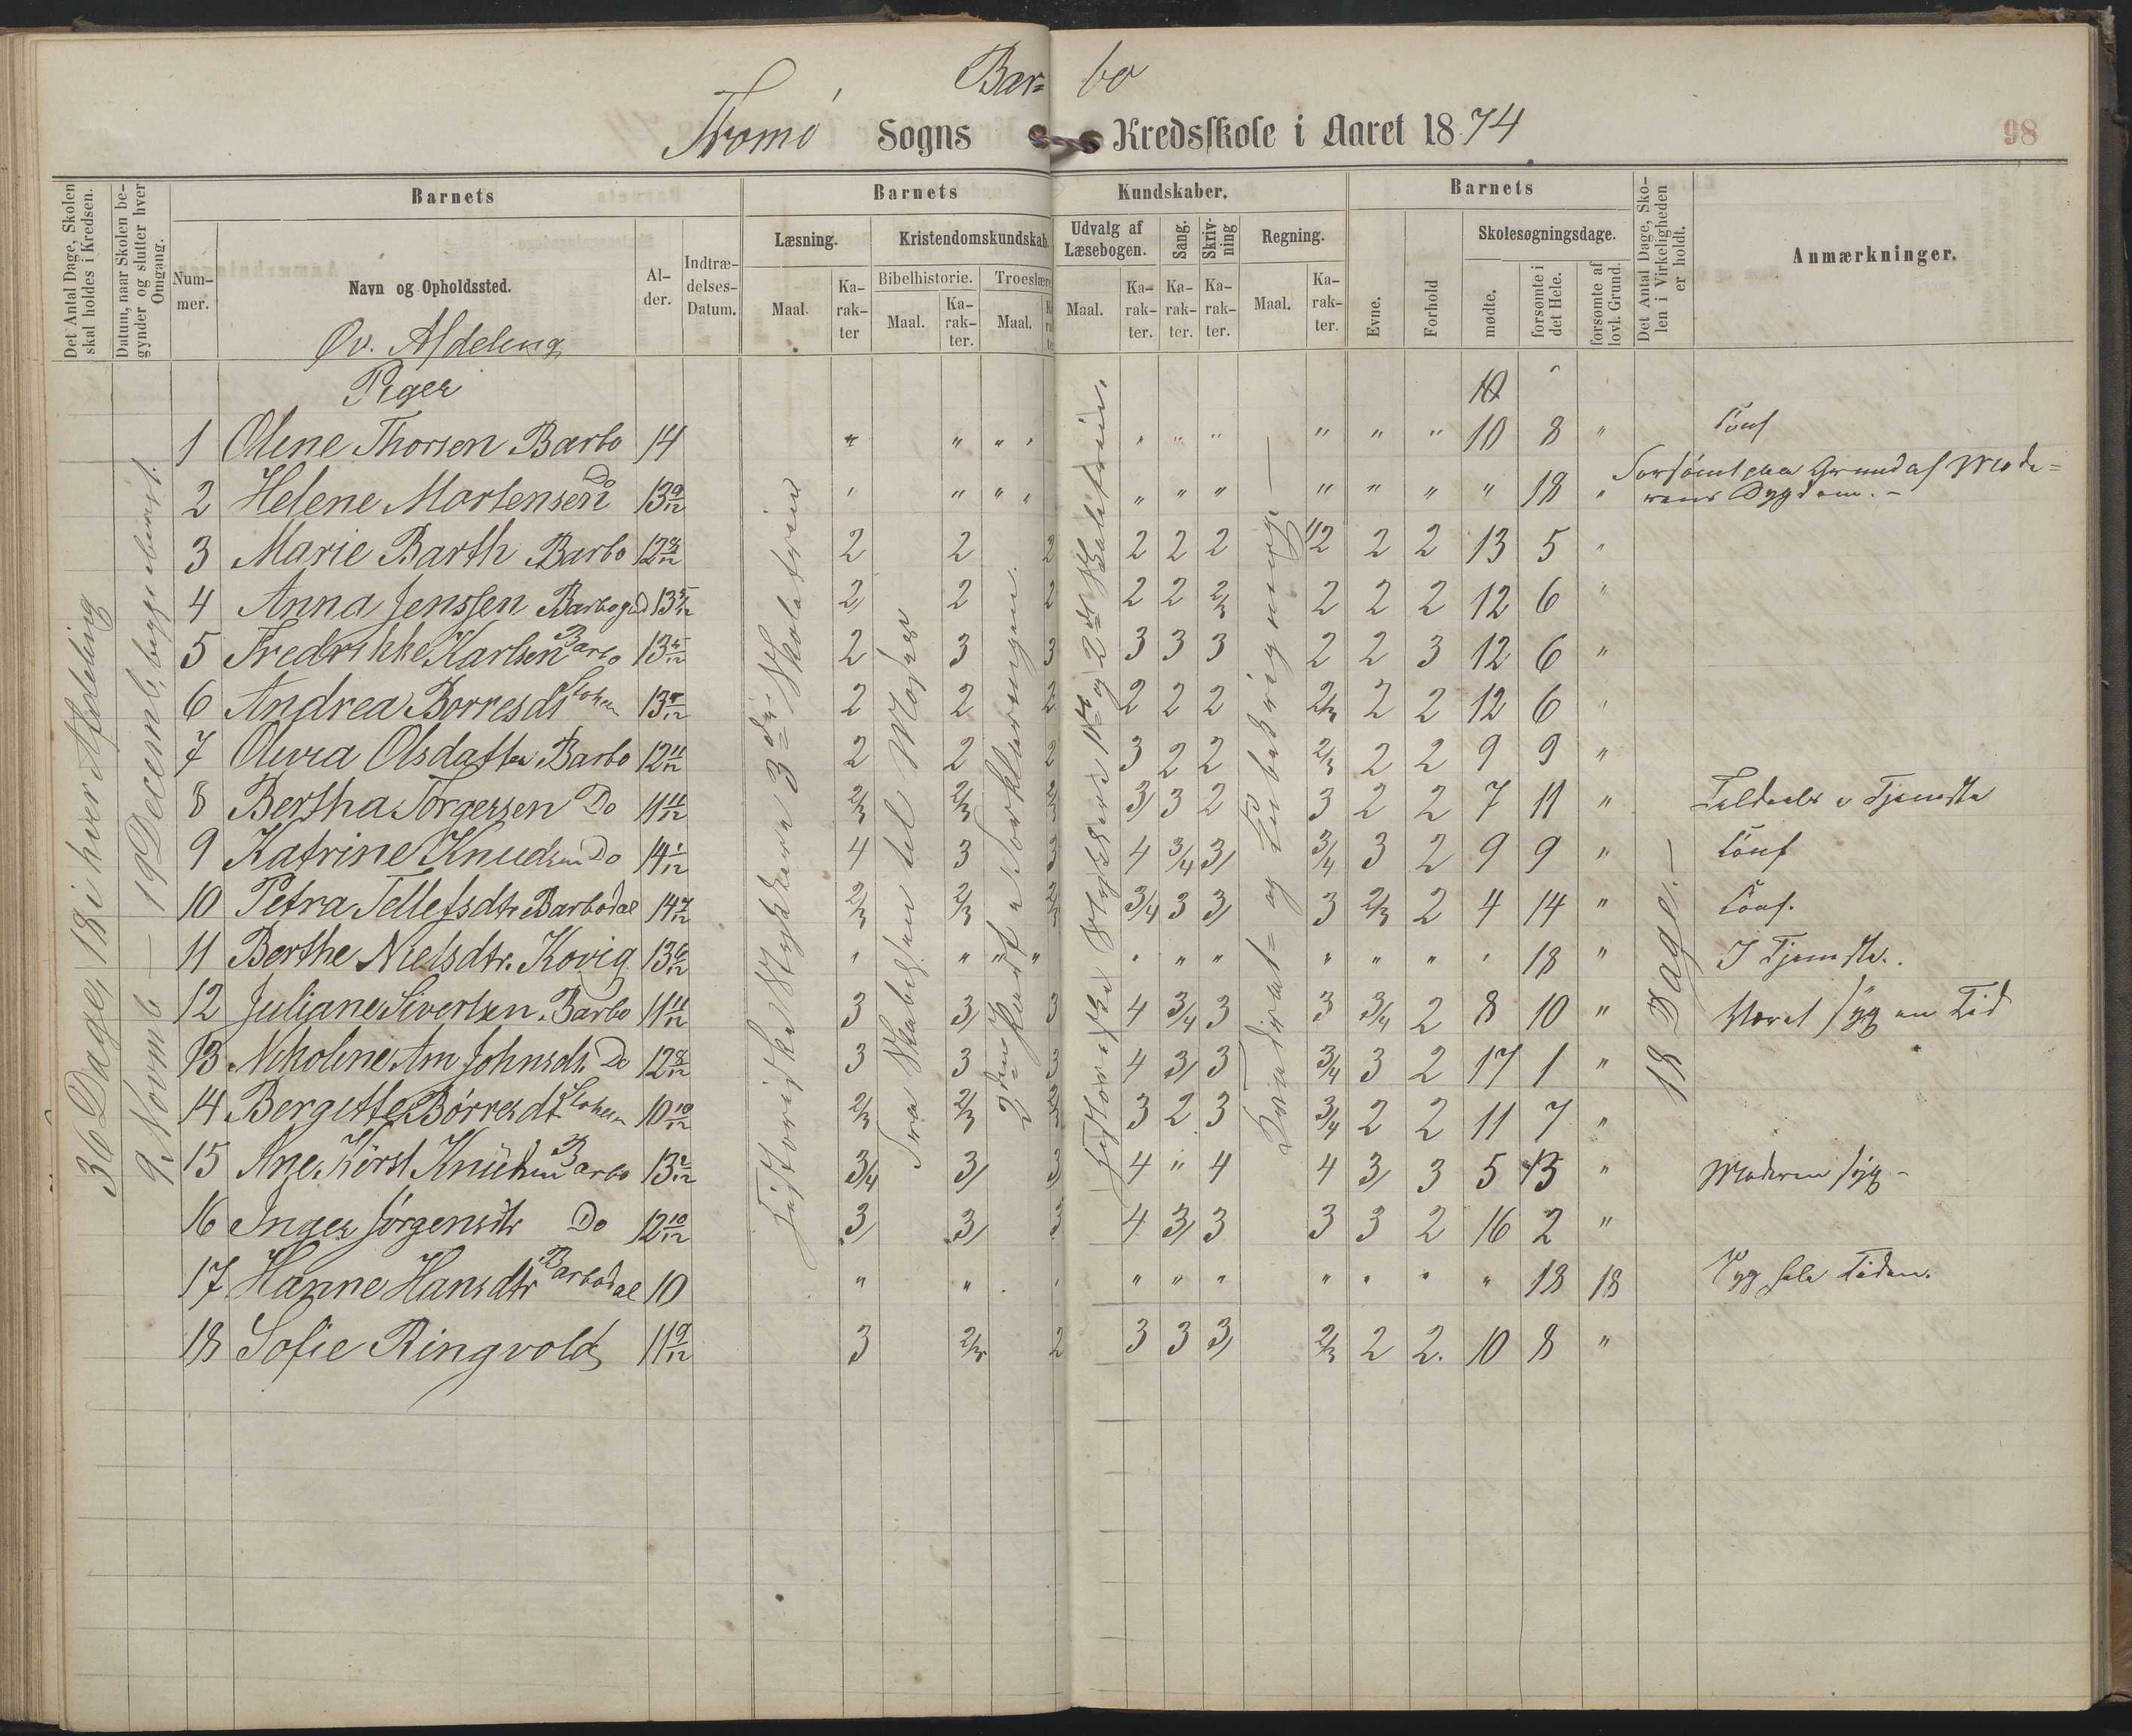 Bar= bo
Tromø Sogns Kredsskole i Aaret 1874.
98
Det Antal Dage, Skolen skal holdes i Kredsen.
Datum, naar Skolen begynder og slutter hver Omgang.
Barnets
Nummer.
Navn og Opholdssted.
Alder.
Indtrædelses-Datum.
Barnets Kundskaber.
Læsning.
Maal.
Karakter
Kristendomskundskab.
Bibelhistorie.
Maal.
Karakter.
Troeslære
Maal.
Udvalg af Læsebogen.
Maal.
Karakter.
Sang.
Karakter.
Skrivning
Karakter.
Regning.
Maal.
Karakter.
Barnets
Evne.
Forhold
Skolesøgningsdage.
mødte.
forsømte i det Hele.
forsømte af lovl. Grund.
Det Antal Dage, Skolen i Virkeligheden er holdt.
Anmærkninger.
Øv. Afdeling
Piger
36 Dage, 18 i hver Afdeling
9 Novmb — 19 Decemb.
Historiske Stykker 3die Skoletrin
Fra Skabelsen til Moses
2den Part a Forklaringen.
Historiske Stykker 1ste og 2det Skoletrin.
Kvadrat= og Kubikregning —
18 Dage. —
1 Oline Thorsen Barbo 14 " " " " " " " " " " 10 8 " Conf
2 Helene Mortensen Do 13 9/12 " " " " " " " " " " " 18 " Forsömt paa Grund af Mode=
rens Sygdom. -
3 Marie Barth Barbo 12 8/12 2 2 2 2 2 2 1/2 2 2 13 5 "
4 Anna Jenssen Barbogrd 13 5/12 2 2 2 2 2 2/3 2 2 2 12 6 "
5 Fredrikke Karlsen Barbo 13 5/12 2 3 3 3 3 3 2 2 3 12 6 "
6 Andrea Börresdt 13 8/12 2 2 2 2 2 2 2/3 2 2 12 6 "
7 Olivia Olsdatter Barbo 12 11/12 2 2 2 3 2 2 2/3 2 2 9 9 "
8 Bertha Torgersen Do 11 11/12 2/3 2/3 2/3 3 3 2 3 2 2 7 11 " Tildeels i Tjeneste
9 Katrine Knudsen Do 14 1/12 4 3 3 4 3/4 3 3/4 3 2 9 9 " Conf
10 Petra Tellefsdtr Barbodal 14 7/12 2/3 2/3 2/3 3/4 3 3 3 2/3 2 4 14 " Conf.
11 Berthe Nielsdtr. Kovig 13 6/12 " " " " " " " " " " " 18 " I Tjeneste.
12 Juliane Sivertsen. Barbo 11 11/12 3 3 3 4 3/4 3 3 3/4 2 8 10 " Været syg en Tid
13 Nikoline Am Johnsdt. Do 12 8/12 3 3 3 4 3 3 3/4 3 2 17 1 "
14 Bergitte Börresdt 10 10/12 2/3 2/3 3 2 3 3/4 2 2 11 7 "
15 Ane Kirst Knudsen Barbo 13 2/12 3/4 3 3 4 " 4 4 3 3 5 13 " Moderen syg -
16 Inger Jörgensdtr Do 12 10/12 3 3 3 4 3 3 3 3 2 16 2 "
17 Hanne Hansdtr Barbodal 10 " " " " " " " " " " 18 18 Syg hele Tiden.
18 Sofie Ringvold 11 9/12 3 2/3 2 3 3 3 2/3 2 2. 10 8 "